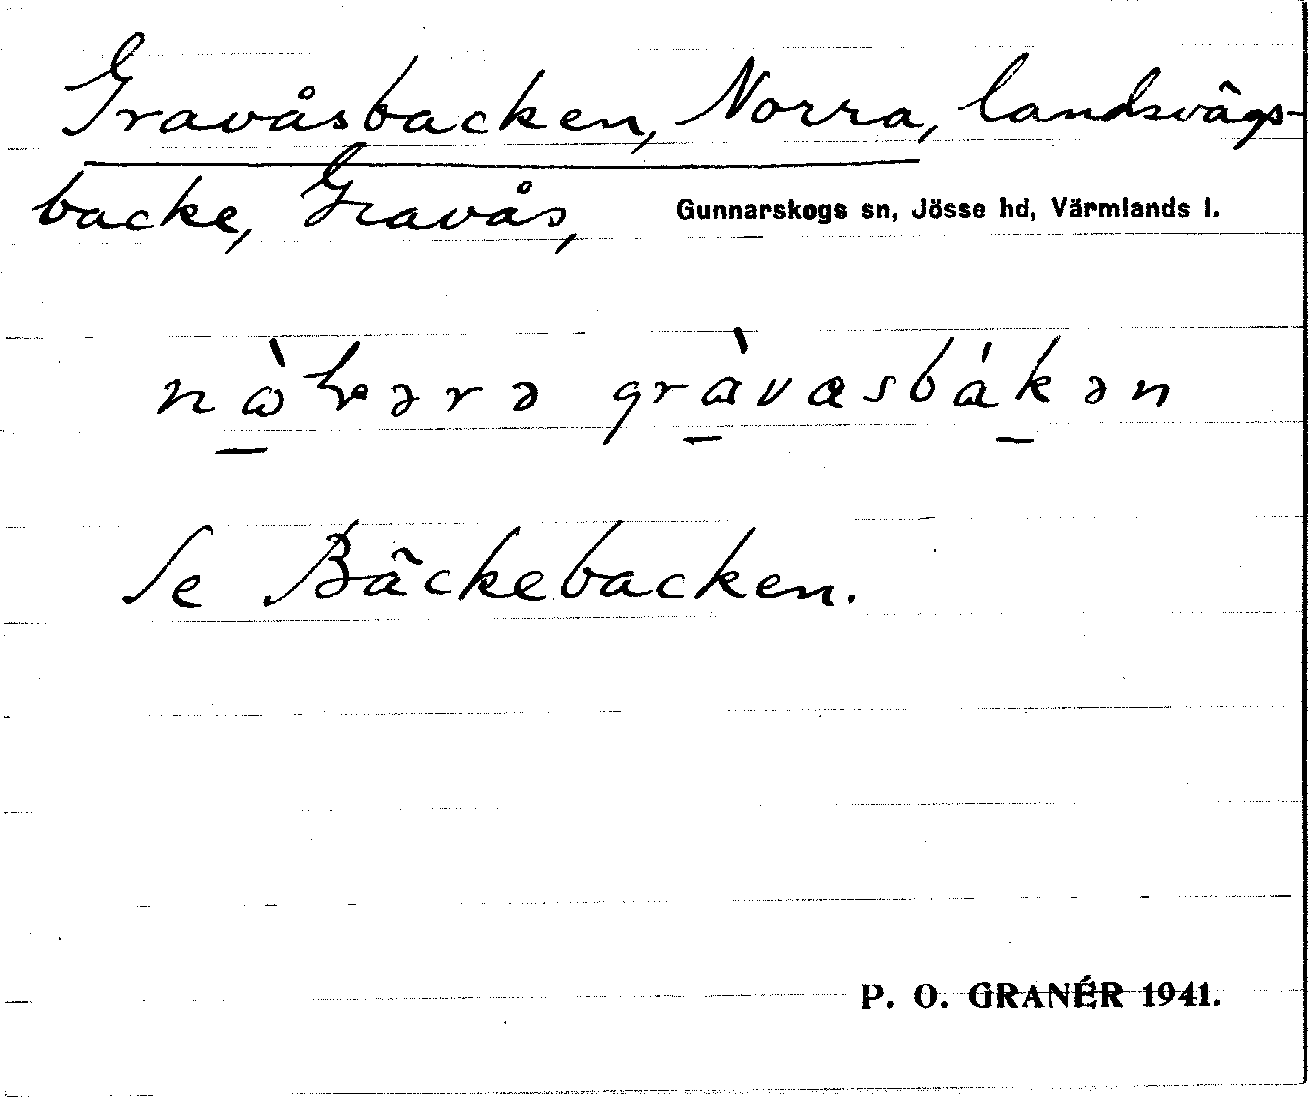 Gravåsbacken, Norra, landsvägs-
backe, Gravås, Gunnarskogs sn, Jösse hd, Värmlands l.
gràvasbákən
Se Bäckebacken.
P. O. GRANÉR 1941.